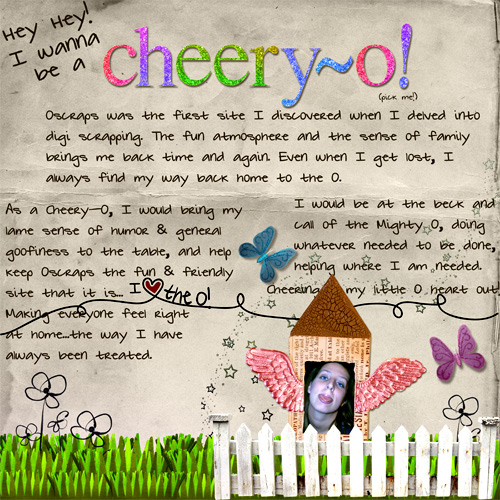 Hey Hey!
I wanna
be a
cheery~o!
(pick me!)
Oscraps was the first site I discovered when I delved into
digi scrapping. The fun atmosphere and the sense of family
brings me back time and again. Even when I get lost, I
always find my way back home to the O.
As a Cheery-O, I would bring my
lame sense of humor & general
goofiness to the table, and help
keep Oscraps the fun & friendly
site that it is... I the O!
Making everyone feel right
at home...the way I have
always been treated.
I would be at the beck and
call of the Mighty O, doing
whatever needed to be done,
helping where I am needed.
Cheering my little O heart out